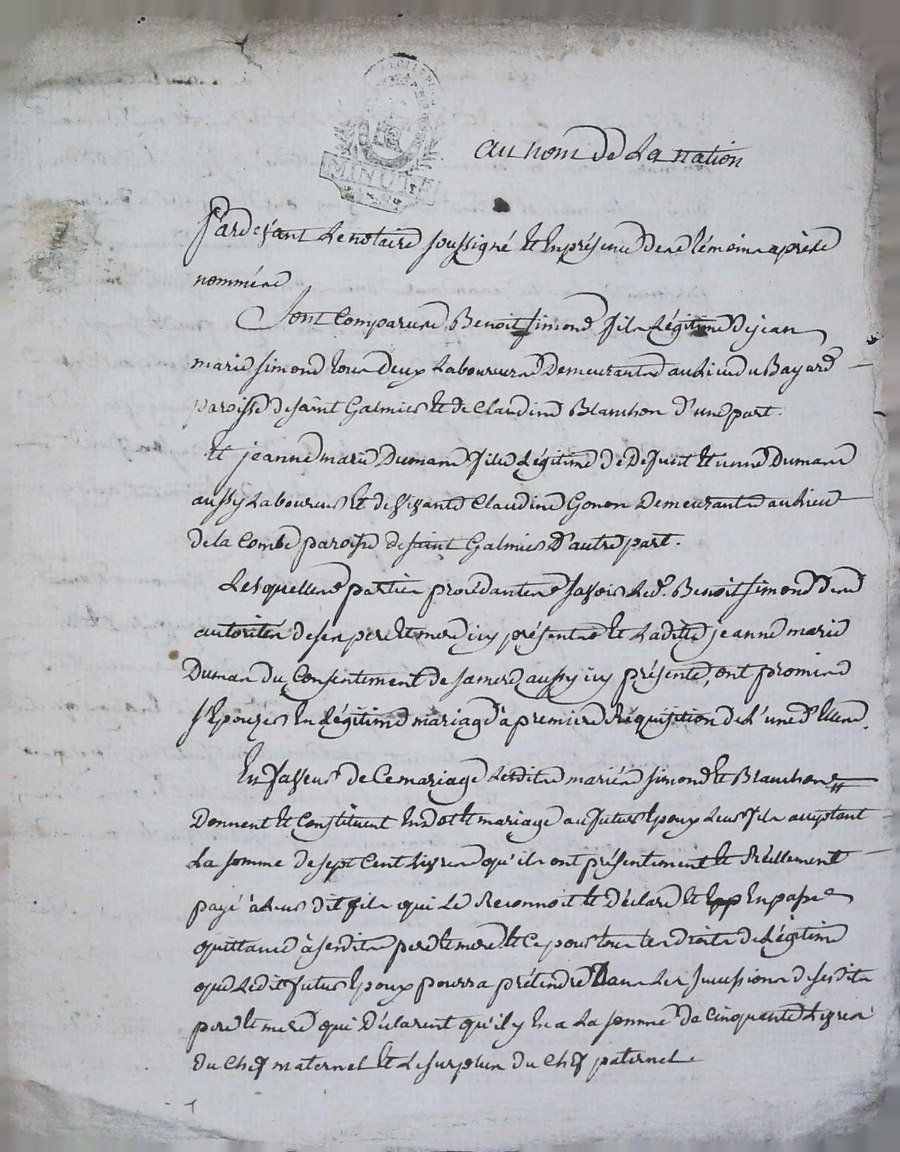 MINUTE
au nom de La nation
Pardevant Le notaire soussigné Et En présence des témoins après
nommés
Sont Comparus Benoit Simond fils Légitime de jean
marie Simond tous deux Laboureurs Demeurants au Lieu du Bayard
paroisse de saint Galmier Et de Claudine Blanchon d'une part.
Et jeanne marie Dumas fille Légitime de Defunt Etienne Dumas
aussy Laboureur Et de vivante Claudine Gonon Demeurante au Lieu
de la Combe paroisse de saint Galmier D'autre part.
Lesquelles parties procédantes sçavoir Led. Benoit Simond des
autorités de ses pere Et mere icy présents Et Laditte jeanne marie
Dumas du Consentement de sa mere aussy icy présente, ont promis
s'Epouser En Légitime mariage à premiere Réquisition de L'une d'Elles.
En faveur de Ce mariage Lesdits mariés Simond Et Blanchon
Donnent Et Constituent En dot Et mariage au futur Epoux Leur fils acceptant
La somme de sept Cent Livres qu'ils ont présentement Et Réellement
payé à leur dit fils qui Le Reconnoit Et Déclare Et En passe
quittance à sesdits pere Et mere Et Ce pour tous les droits de Légitime
que Ledit futur Epoux pourra prétendre Dans Les successions de sesdits
pere Et mere qui Déclarent qu'il y En a La somme de Cinquante Livres
du Chef maternel Et Le surplus du Chef paternel.